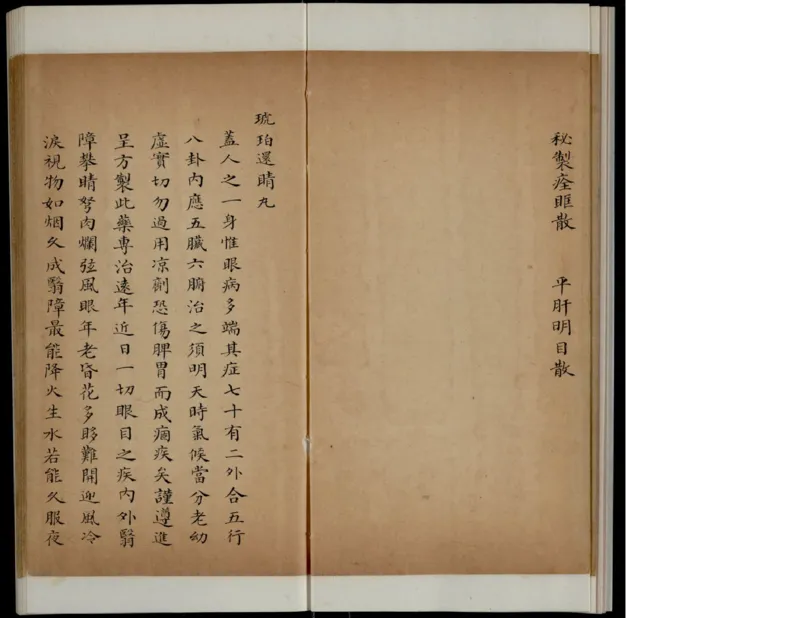 秘製痊眶散　平肝明目散
琥珀還睛丸
蓋人之一身惟眼病多端其症七十有二外合五行
八卦內應五臟六腑治之須明天時氣候當分老幼
虛實切勿過用凉劑恐傷脾胃而成痼疾矣謹遵進
呈方製此藥專治遠年近日一切眼目之疾內外翳
障攀睛努肉爛弦風眼年老昏花多眵難開迎風冷
淚視物如烟久成翳障最能降火生水若能久服夜